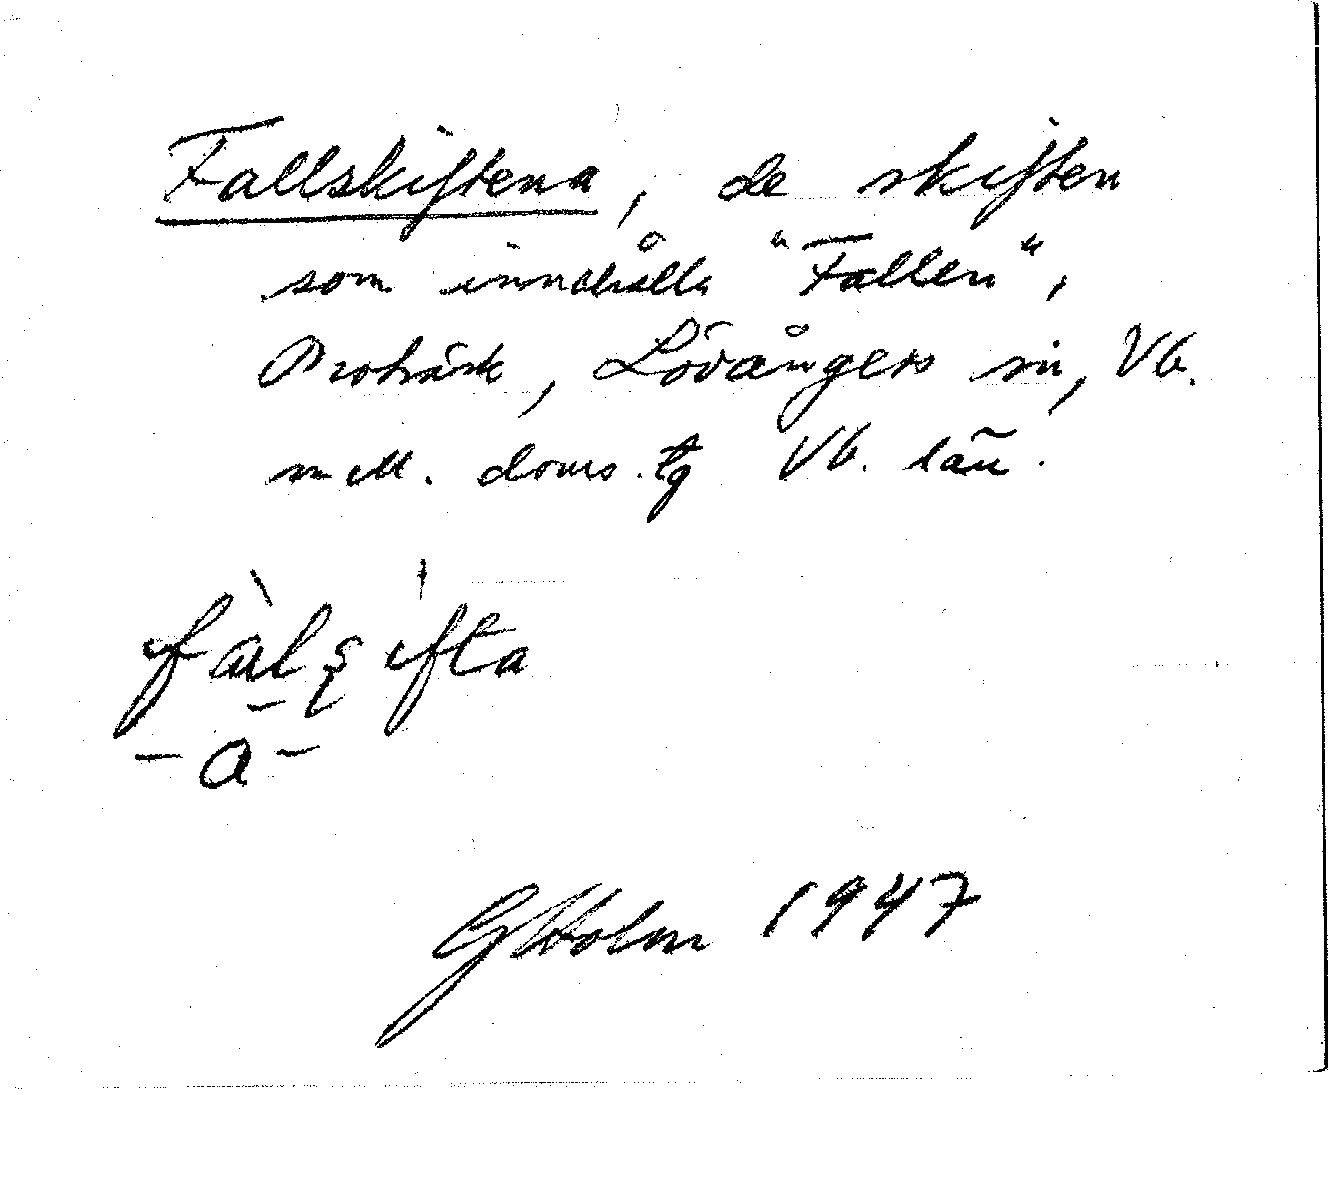 Fallskiftena, de skiften
som innehålla "Fallen",
Broträsk, Lövångers sn, Vb.
mell. doms.tg Vb. län.
fàlʂifta
-a-
GHolm 1947